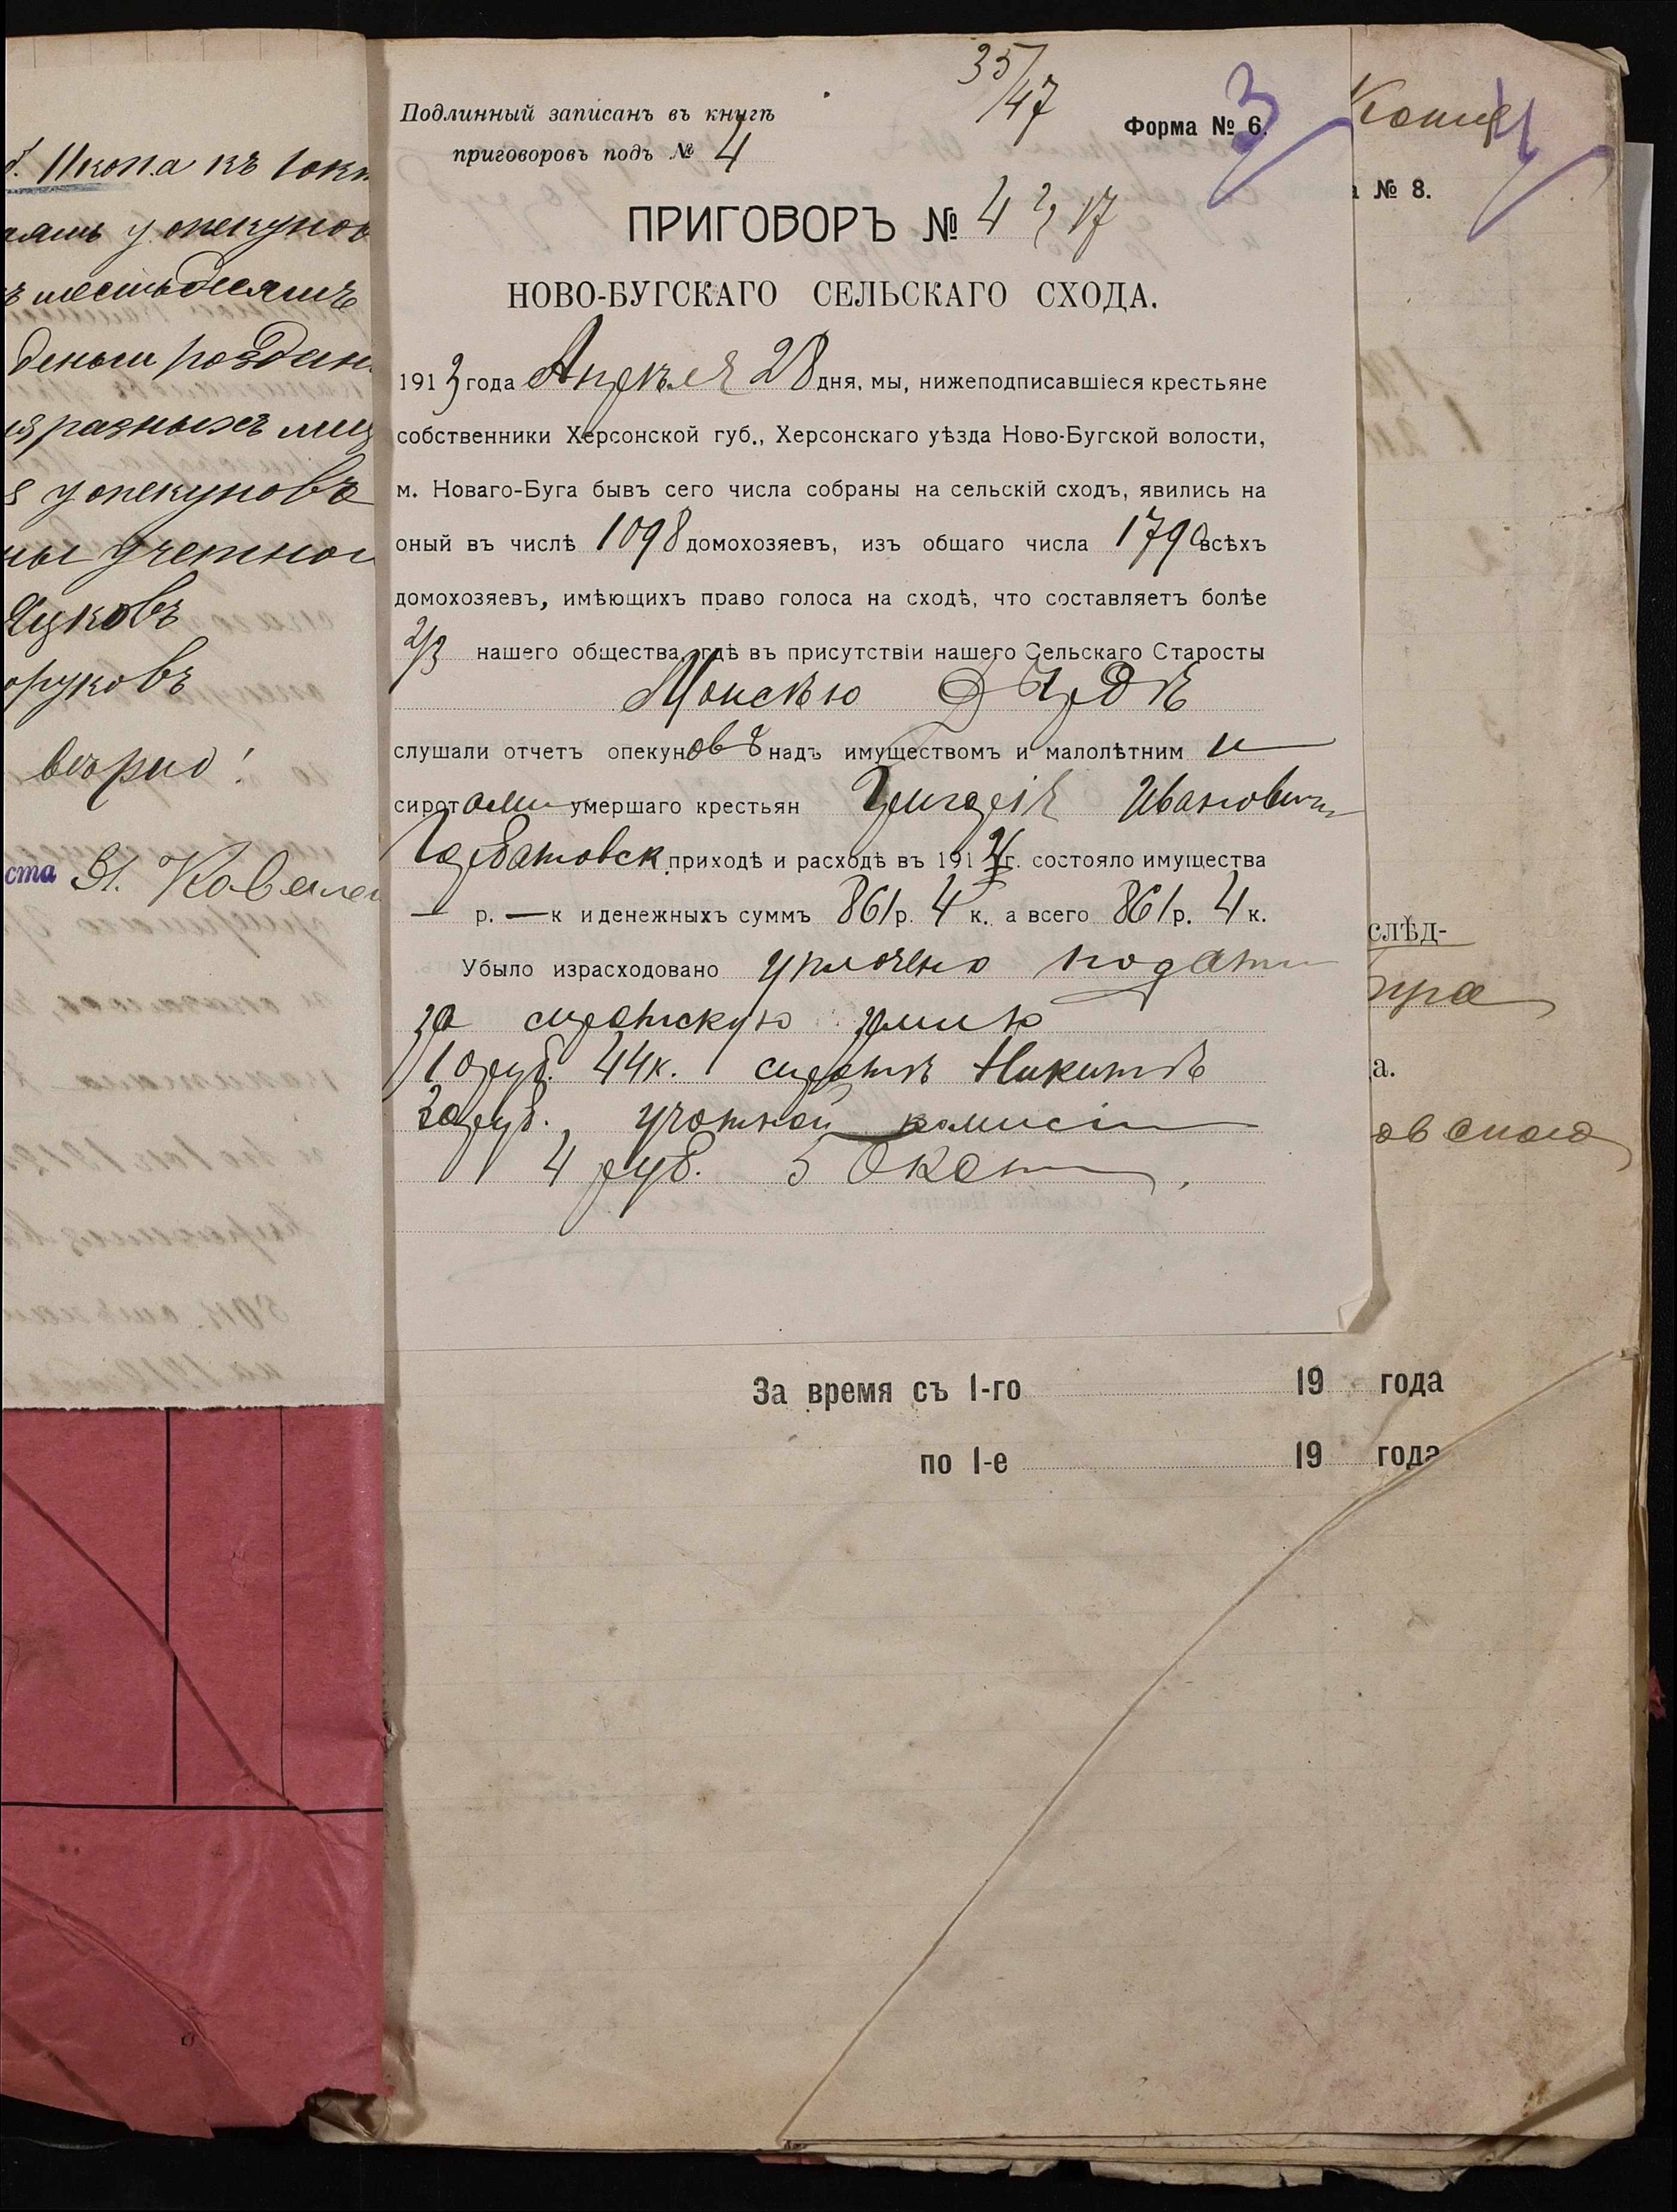 б. Икона къ 1
у опекунов
шестьдесятъ
деньги роздан
разныхъ лиц
у опекуновъ
учетной
Яцковъ
оруковъ
вѣрно!
ста Я. Ковален
35/47
Подлинный записанъ въ книгѣ
приговоровъ подъ № 4
Форма № 6. 3
ПРИГОВОРЪ № 4 2/17
НОВО-БУГСКАГО СЕЛЬСКАГО СХОДА.
1913 года Апрѣля 28 дня, мы, нижеподписавшіеся крестьяне
собственники Херсонской губ., Херсонскаго уѣзда Ново-Бугской волости,
м. Новаго-Буга бывъ сего числа собраны на сельскій сходъ, явились на
оный въ числѣ 1098 домохозяевъ, изъ общаго числа 1790 всѣхъ
домохозяевъ, имѣющихъ право голоса на сходѣ, что составляетъ болѣе
2/3 нашего общества, гдѣ въ присутствіи нашего Сельскаго Старосты
слушали отчетъ опекуновъ надъ имуществомъ и малолѣтним и
сиротами умершаго крестьян Григорія Ивановича
Горбатовск приходѣ и расходѣ въ 1912 г. состояло имущества
— р. — к и денежныхъ суммъ 861 р. 4 к. а всего 861 р. 4 к.
Убыло израсходовано уплочено подати
за сиротскую землю
10 руб. 44 к. сиротѣ Никитѣ
20 руб., учотной комисіи
4 руб. 50 коп.
За время съ 1-го 19 года
по 1-е 19 года
Копія 4
№ 8.
слѣд-
а.
овскаго